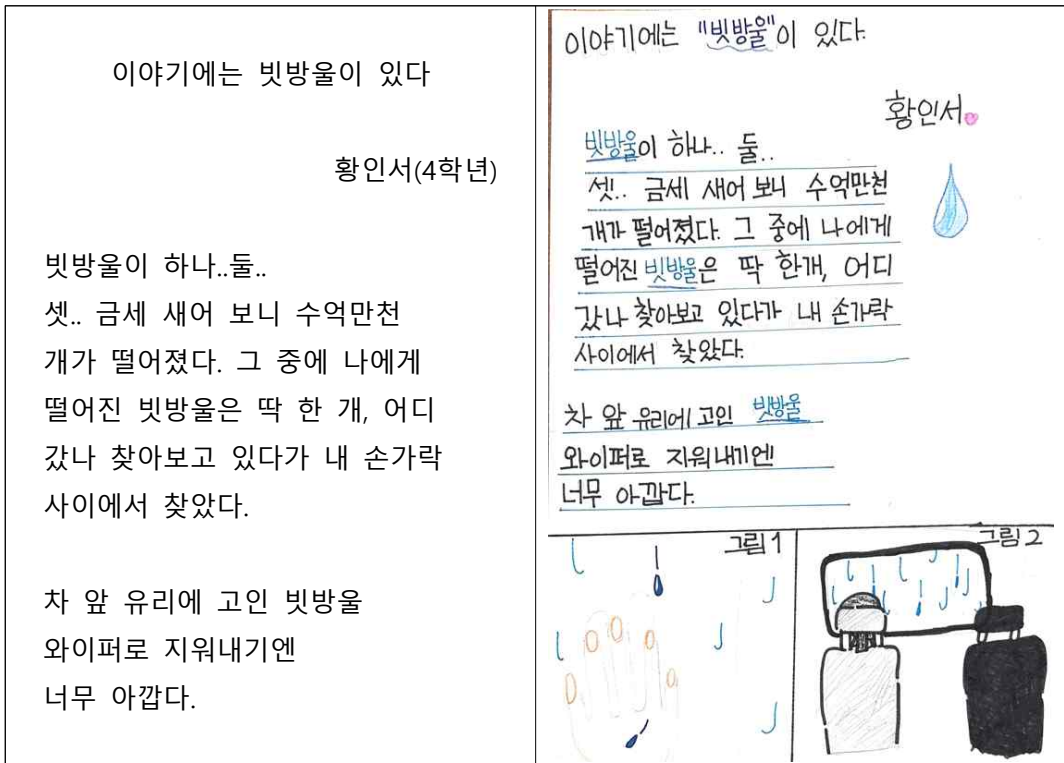 이야기에는 빗방울이 있다
황인서(4학년)
빗방울이 하나..둘..
셋.. 금세 새어 보니 수억만천
개가 떨어졌다. 그 중에 나에게
떨어진 빗방울은 딱 한 개, 어디
갔나 찾아보고 있다가 내 손가락
사이에서 찾았다.
차 앞 유리에 고인 빗방울
와이퍼로 지워내기엔
너무 아깝다.
이야기에는 "빗방울"이 있다.
황인서
빗방울이 하나.. 둘..
셋.. 금세 새어 보니 수억만천
개가 떨어졌다. 그 중에 나에게
떨어진 빗방울은 딱 한개, 어디
갔나 찾아보고 있다가 내 손가락
사이에서 찾았다.
차 앞 유리에 고인 빗방울
와이퍼로 지워내기엔
너무 아깝다.
그림1
그림2